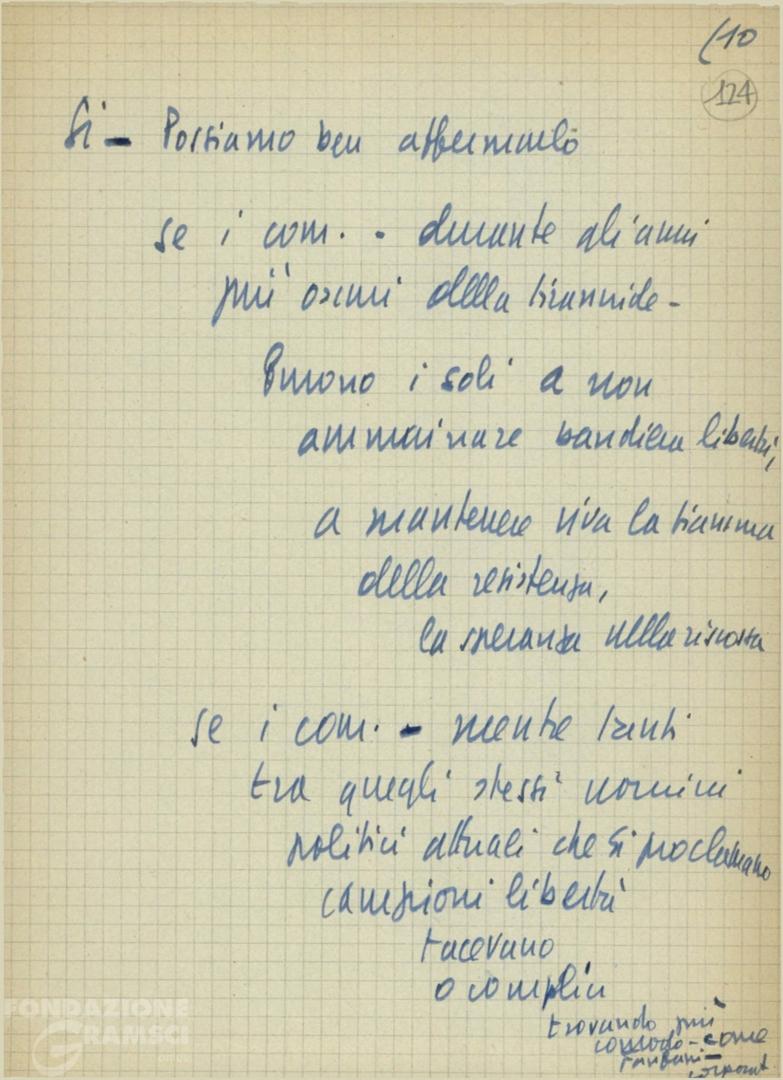 (10
124
Si - Possiamo ben affermarlo
se i com. - durante gli anni
più oscuri della tirannide -
furono i soli a non
ammainare bandiera libertà,
a mantenere viva la fiamma
della resistenza,
la speranza nella riscossa
se i com. - mentre tanti
tra quegli stessi uomini
politici attuali che si proclamano
campioni libertà
tacevano
o complici
trovando più
comodo - come
Fanfani -
FONDAZIONE
GRAMSCI